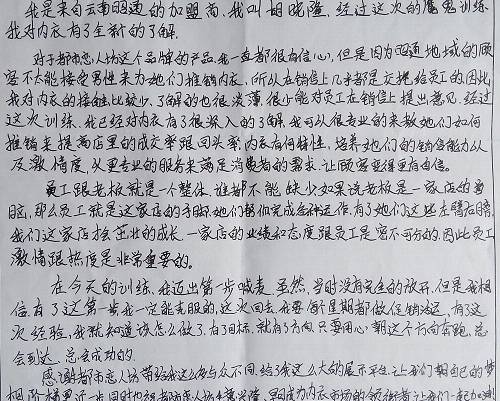 我是来自云南昭通的加盟商,我叫胡晓隆,经过这次的魔鬼训练
我对内衣有了全新的了解.
对于都市恋人坊这个品牌的产品我一直都很有信心,但是因为昭通地域的顾
客不太能接受男性来为她们推销内衣,所以在销售上几乎都是交托给员工的,因此
我对内衣的接触比较少,了解的也很淡薄,很少能对员工在销售上提出意见,经过
这次训练,我已经对内衣有了很深入的了解,我可以很专业的来教她们如何
推销来提高店里的成交率跟回头率,内衣有何特性,培养她们的销售能力以
及激情度,从更专业的服务来满足消费者的需求,让顾客变得更有自信。
员工跟老板就是一个整体,谁都不能缺少如果说老板是一家店的首
脑,那么员工就是这家店的手脚她们帮你完成各种运作,有了她们这些左臂右膀
我们这家店才会茁壮的成长,一家店的业绩和态度跟员工是密不可分的,因此员工
激情跟热度是非常重要的。
在今天的训练,我迈出第一步喊麦,虽然,当时没有完全的放开,但是我相
信有了这第一步我一定能克服的,这次回去,我要每个星期都做促销活动,有了这
次经验,我就知道该怎么做了,有了目标,就有了方向,只要用心朝这个方向奔跑,总
会到达,总会成功的.
感谢都市恋人坊带给我这么多与众不同,给了我这么大的展示平台,让我们朝自己的梦